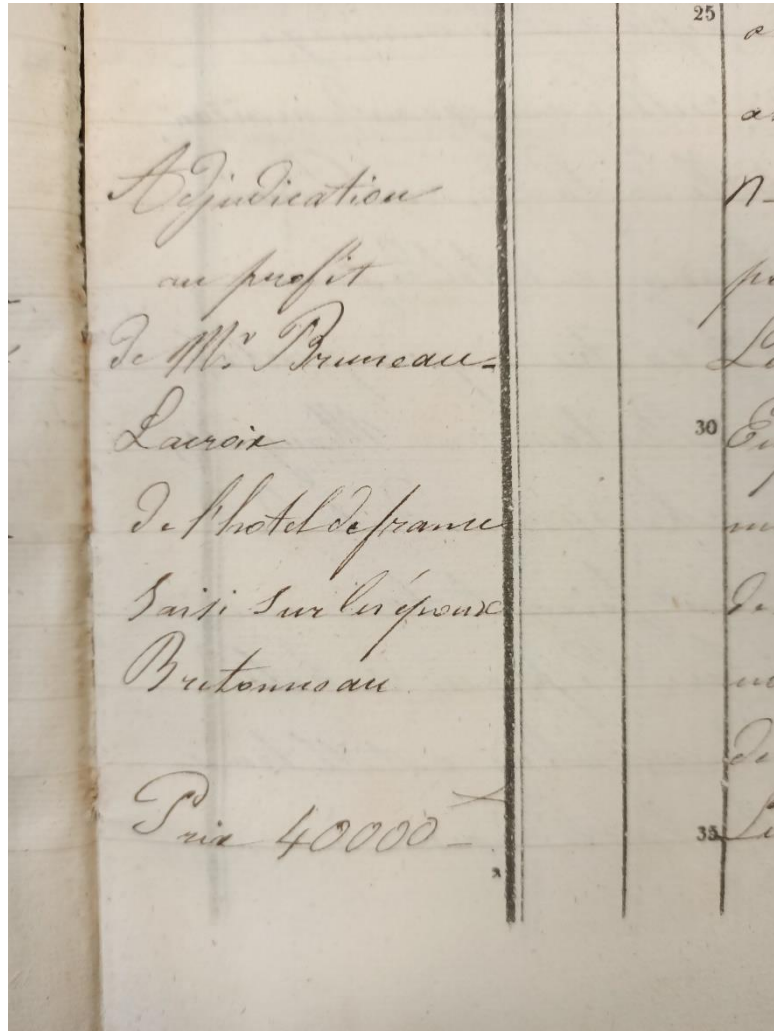 25
Adjudication
n
au profit
de Mr. Bruneau-
Lacroix
30
de l'hotel de france
Saisi Sur les époux
de
Bretonneau
de
Prix 40000 -
35